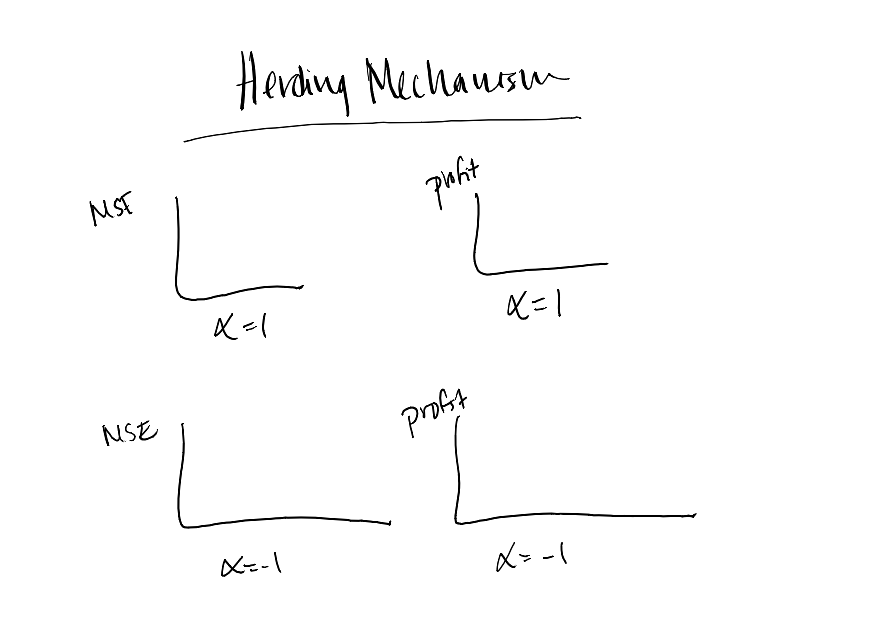 Herding Mechanism
MSE
profit
α=1
α=1
MSE
profit
α=-1
α=-1